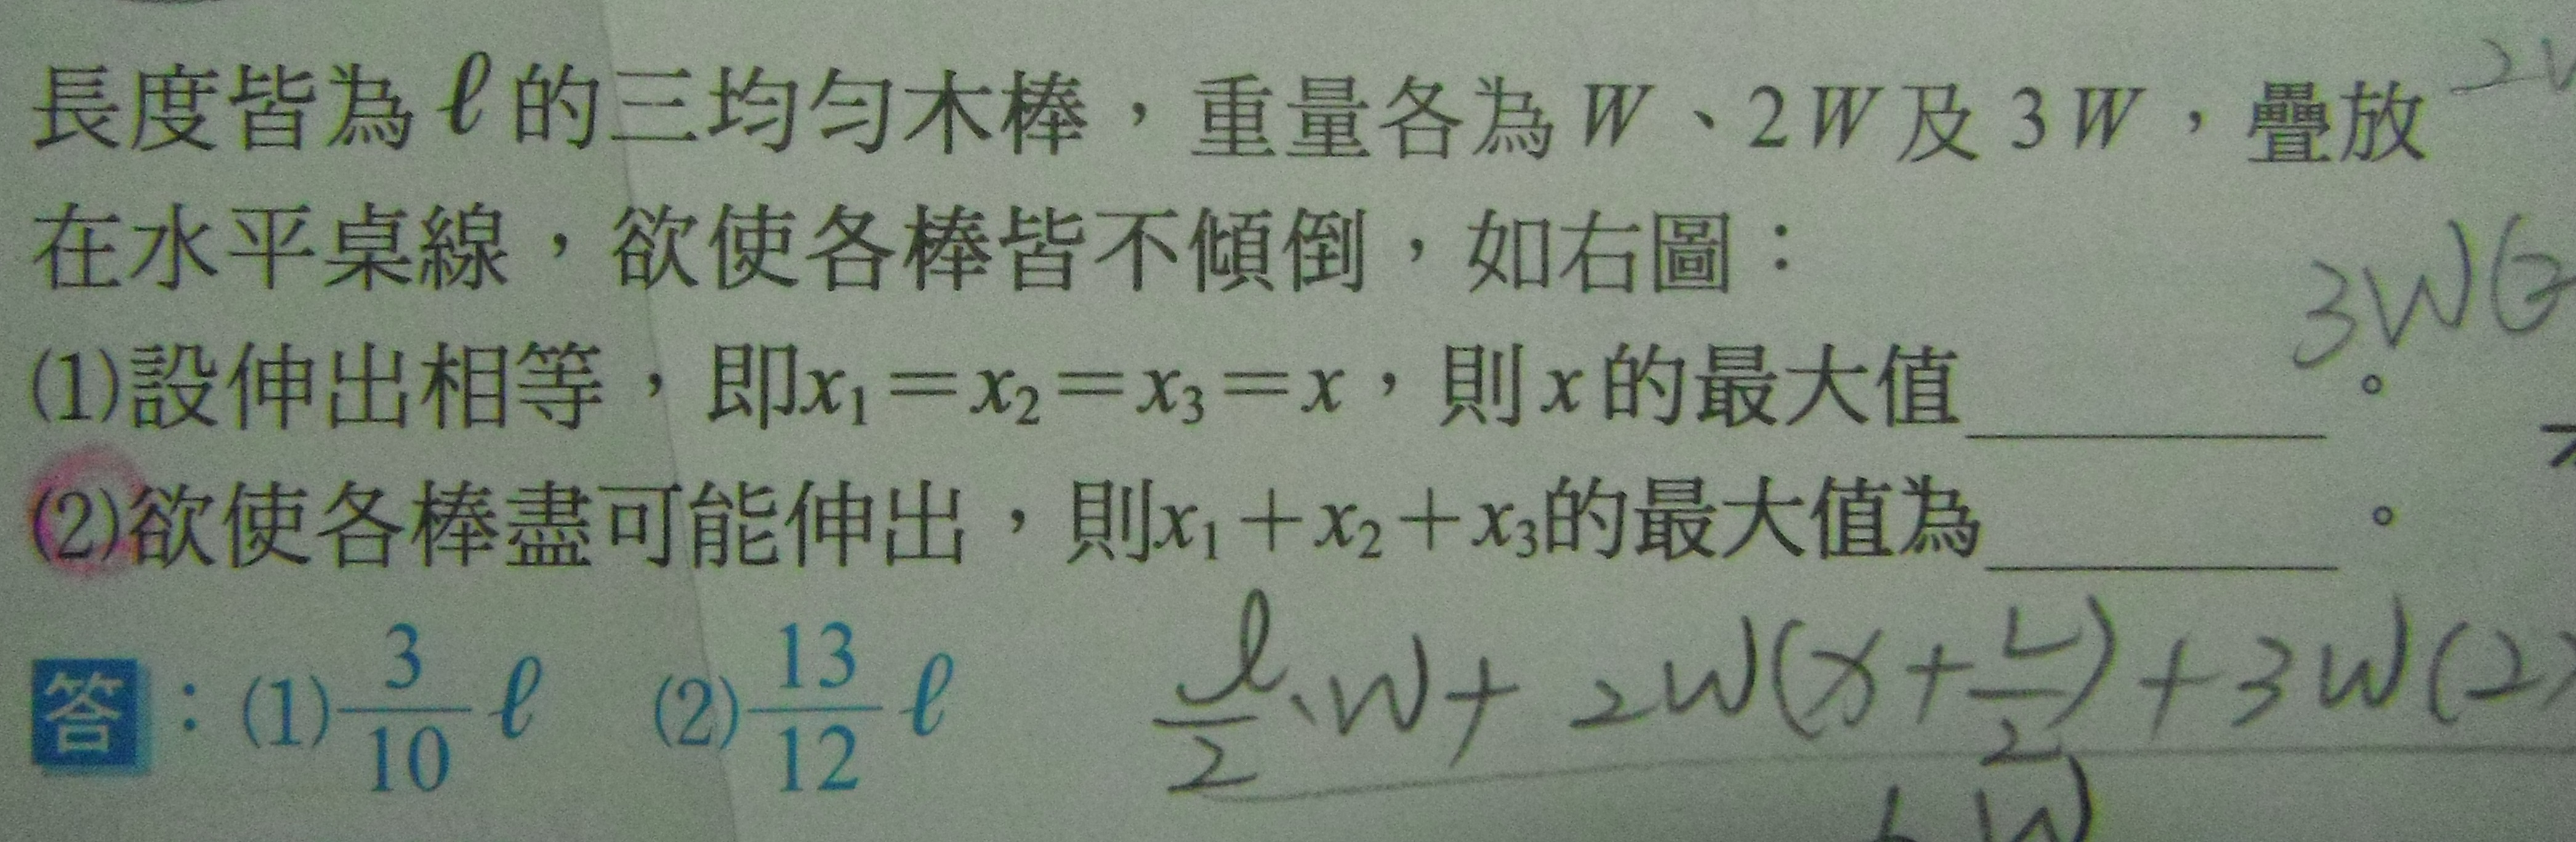 長度皆為ℓ的三均勻木棒，重量各為W、2W及3W，疊放
在水平桌線，欲使各棒皆不傾倒，如右圖：
3W(2
(1)設伸出相等，即x₁＝x₂＝x₃＝x，則x的最大值________。
(2)欲使各棒盡可能伸出，則x₁＋x₂＋x₃的最大值為________。
答：(1) 3/10 ℓ (2) 13/12 ℓ
ℓ/2·W+2W(x+L/2)+3W(2
6W